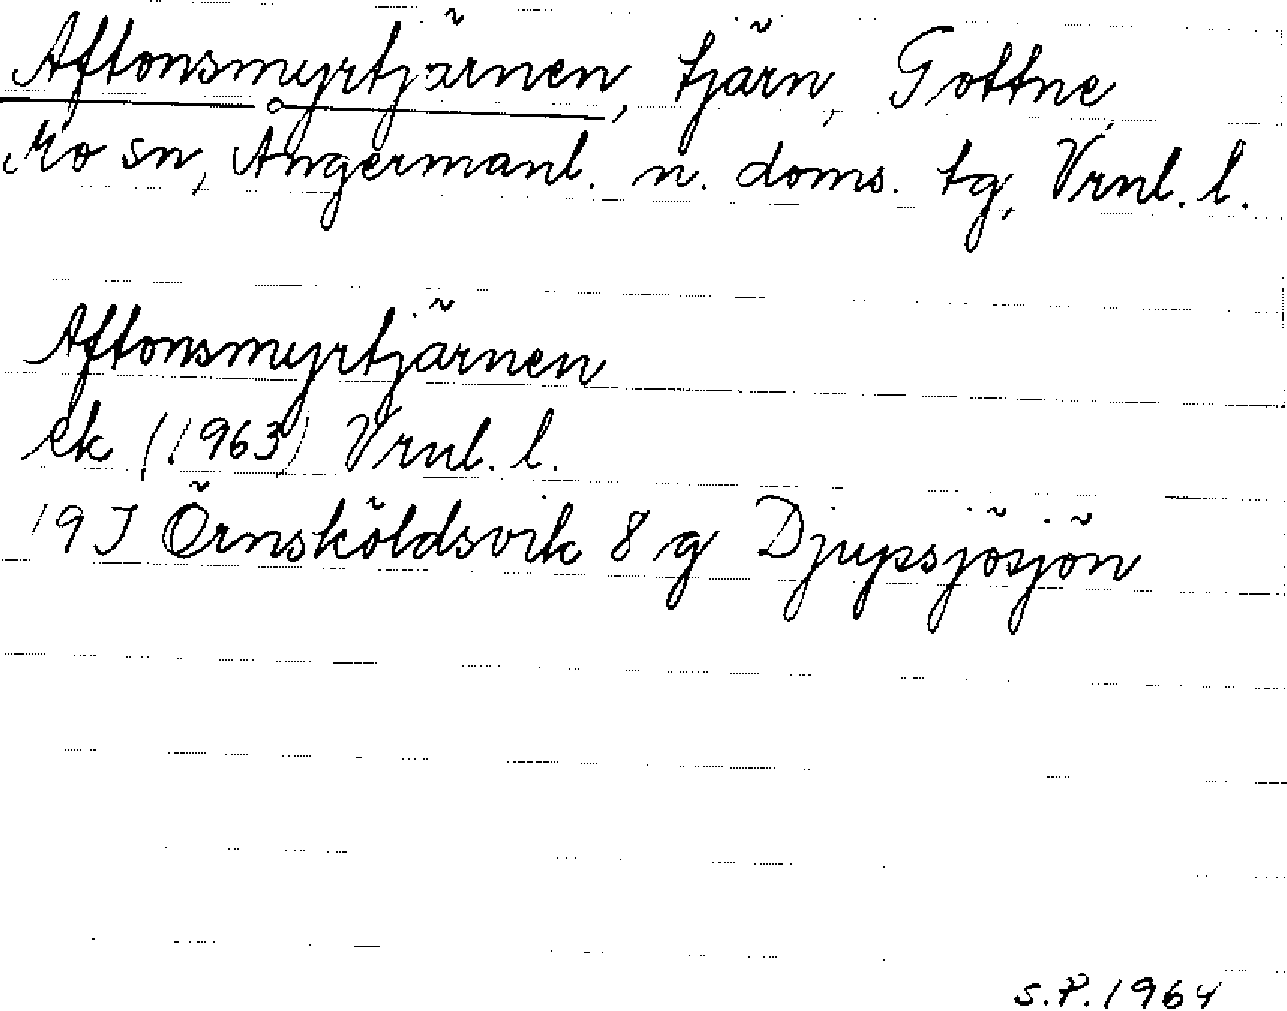 Aftonsmyrtjärnen, tjärn, Gottne,
Mo sn, Ångermanl. n. doms. tg, Vrnl. l.
Aftonsmyrtjärnen
ek (1963) Vrnl. l.
19 J Örnsköldsvik 8 g Djupsjösjön
S.P. 1964